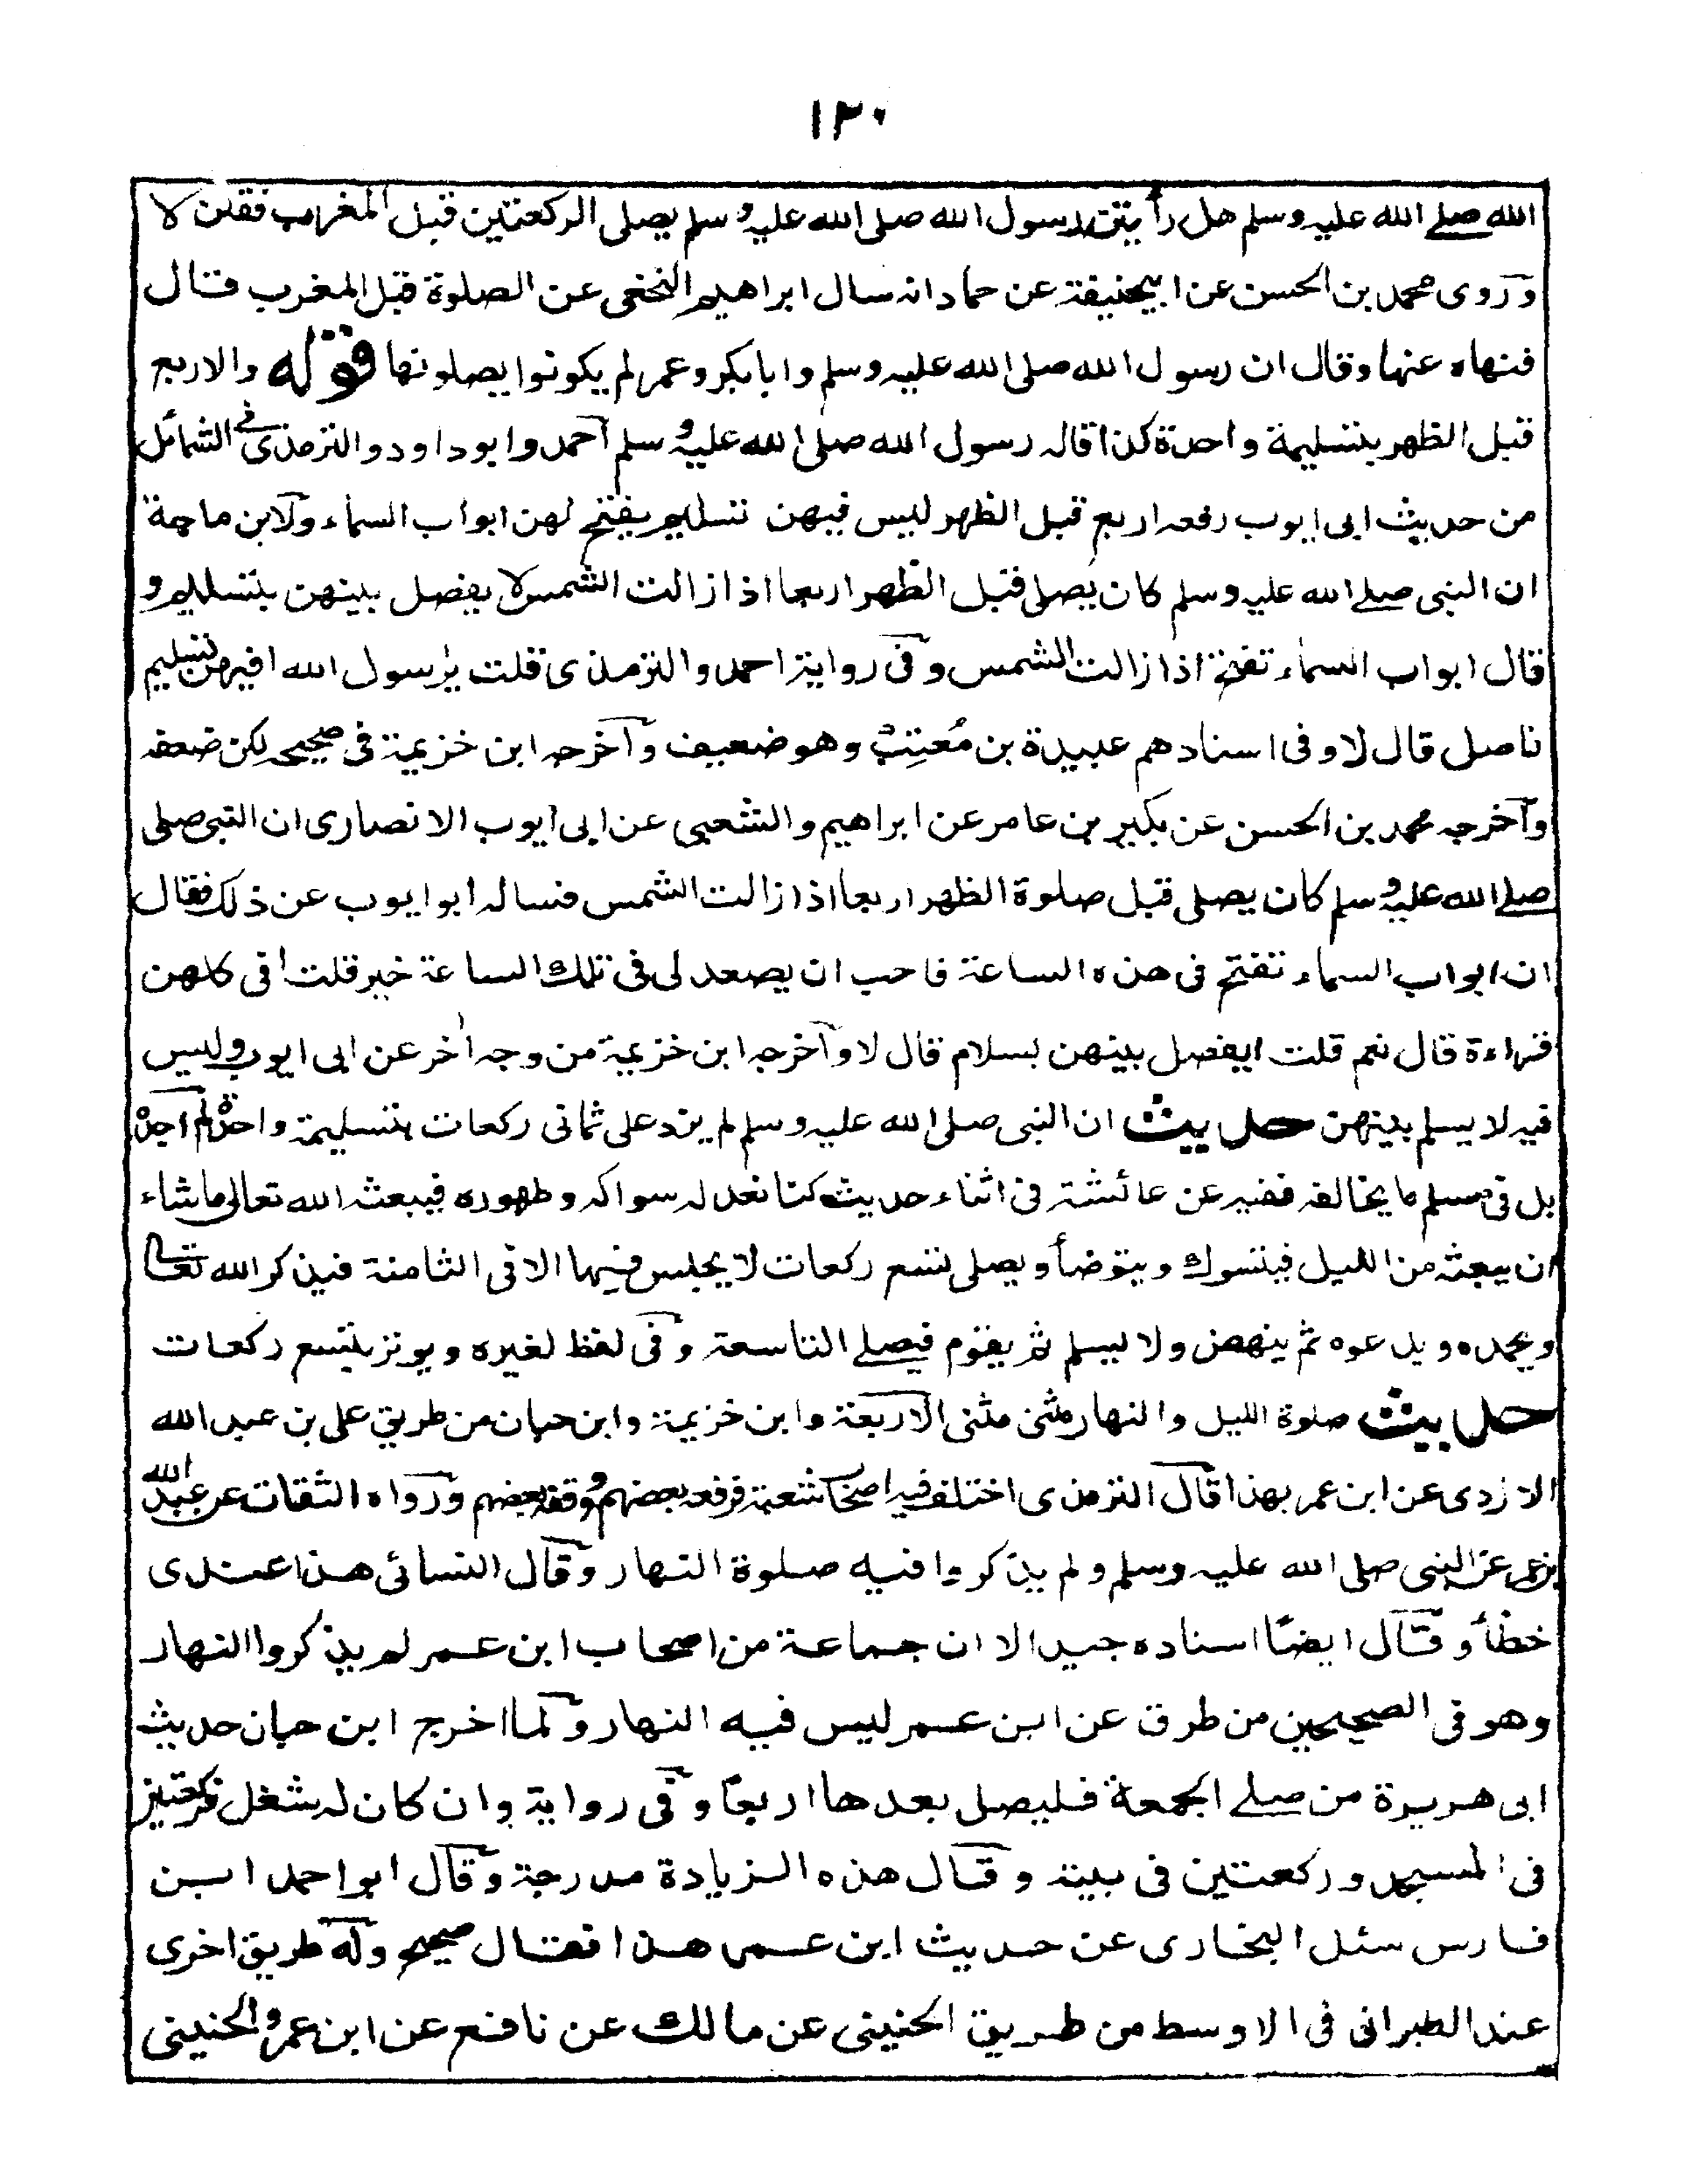 ١٢٠
الله صلے الله عليه وسلم هل رأيتن رسول الله صلى الله عليه وسلم يصلى الركعتين قبل المغرب فقلن لا
وروى محمد بن الحسن عن ابيحنيفة عن حماد انه سال ابراهيم النخعى عن الصلوة قبل المغرب قال
فنهاه عنها وقال ان رسول الله صلى الله عليه وسلم وابابكر وعمر لم يكونوا يصلونها قوله والاربع
قبل الظهر بتسليمة واحدة كذا قاله رسول الله صلى الله عليه وسلم احمد وابوداود والترمذى فى الشمائل
من حديث ابى ايوب رفعه اربع قبل الظهر ليس فيهن تسليم يفتح لهن ابواب السماء ولابن ماجة
ان النبى صلے الله عليه وسلم كان يصلى قبل الظهر اربعا اذا زالت الشمس لا يفصل بينهن بتسليم و
قال ابواب السماء تفتح اذا زالت الشمس وفى رواية احمد والترمذى قلت يا رسول الله افيهن تسليم
ناصل قال لا وفى اسنادهم عبيدة بن مُعتِبْ وهو ضعيف واخرجه ابن خزيمة فى صحيحه لكن ضعفه
واخرجه محمد بن الحسن عن بكير بن عامر عن ابراهيم والشعبى عن ابى ايوب الانصارى ان النبى صلى
صلے الله عليه وسلم كان يصلى قبل صلوة الظهر اربعا اذا زالت الشمس فساله ابوايوب عن ذلك فقال
ان ابواب السماء تفتح فى هذه الساعة فاحب ان يصعد لى فى تلك الساعة خير قلت افى كلهن
قراءة قال نعم قلت ايفصل بينهن بسلام قال لا واخرجه ابن خزيمة من وجه اخر عن ابى ايوب وليس
فيه لا يسلم بينهن حديث ان النبى صلى الله عليه وسلم لم يزد على ثمانى ركعات بتسليمة واحدة لم اجده
بل فى مسلم ما يخالفه ففيه عن عائشة فى اثناء حديث كنا نعد له سواكه وطهوره فيبعثه الله تعالى ماشاء
ان يبعثه من الليل فيتسوك ويتوضأ ويصلى تسع ركعات لا يجلس فيها الا فى الثامنة فيذكر الله تعا
ويحمده ويدعوه ثم ينهض ولا يسلم ثم يقوم فيصلے التاسعة وفى لفظ لغيره ويوتر بتسع ركعات
حديث صلوة الليل والنهار مثنى مثنى الاربعة وابن خزيمة وابن حبان من طريق على بن عبد الله
الازدى عن ابن عمر بهذا قال الترمذى اختلف فيه اصحاب شعبة فرفعه بعضهم ووقفه بعضهم ورواه الثقات عن عبد الله
بن عمر عن النبى صلى الله عليه وسلم ولم يذكروا فيه صلوة النهار وقال النسائى هذا عندى
خطأ وقال ايضًا اسناده جيد الا ان جماعة من اصحاب ابن عمر لم يذكروا النهار
وهو فى الصحيحين من طرق عن ابن عمر ليس فيه النهار ولما اخرج ابن حبان حديث
ابى هريرة من صلے الجمعة فليصل بعدها اربعًا وفى رواية وان كان له شغل فركعتين
فى المسجد وركعتين فى بيته وقال هذه الزيادة مدرجة وقال ابو احمد ابن
فارس سئل البخارى عن حديث ابن عمر هذا فقال صحيح وله طريق اخرى
عند الطبرانى فى الاوسط من طريق الحنينى عن مالك عن نافع عن ابن عمر والحنينى